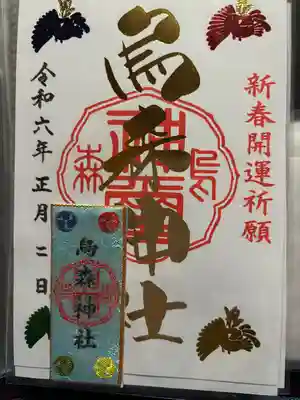 新春開運祈願
烏森神社
烏森
令和六年正月二日
烏森神社